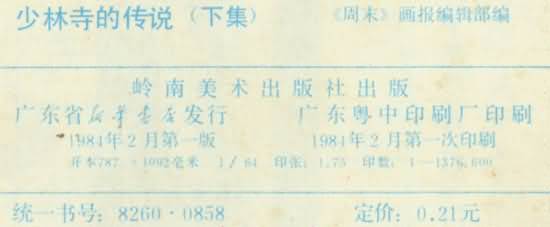 少林寺的传说（下集） 《周末》画报编辑部编
岭南美术出版社出版
广东省新华书店发行 广东粤中印刷厂印刷
1984年2月第一版 1984年2月第一次印刷
开本787×1092毫米 1/64 印张：1.75 印数：1—1376,600
统一书号：8260·0858 定价：0.21元